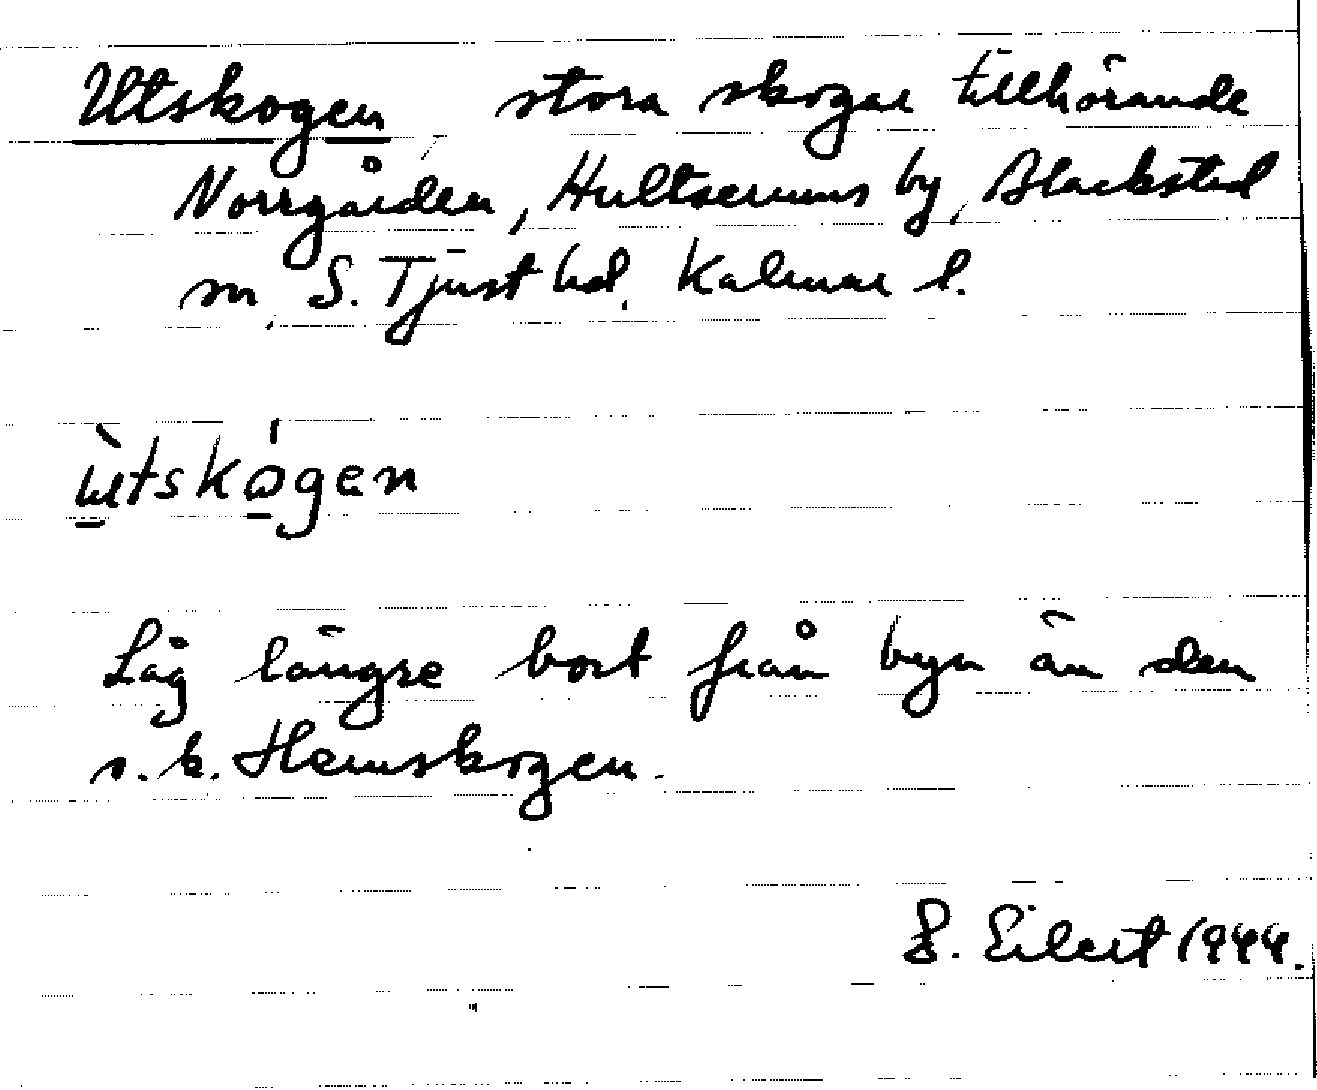 Utskogen, stora skogar tillhörande
Norrgården, Hultserums by, Blackstad
sn, S. Tjust hd, Kalmar l.
ùtskógen
Låg längre bort från byn än den
s.k. Hemskogen.
Eilert 1944.